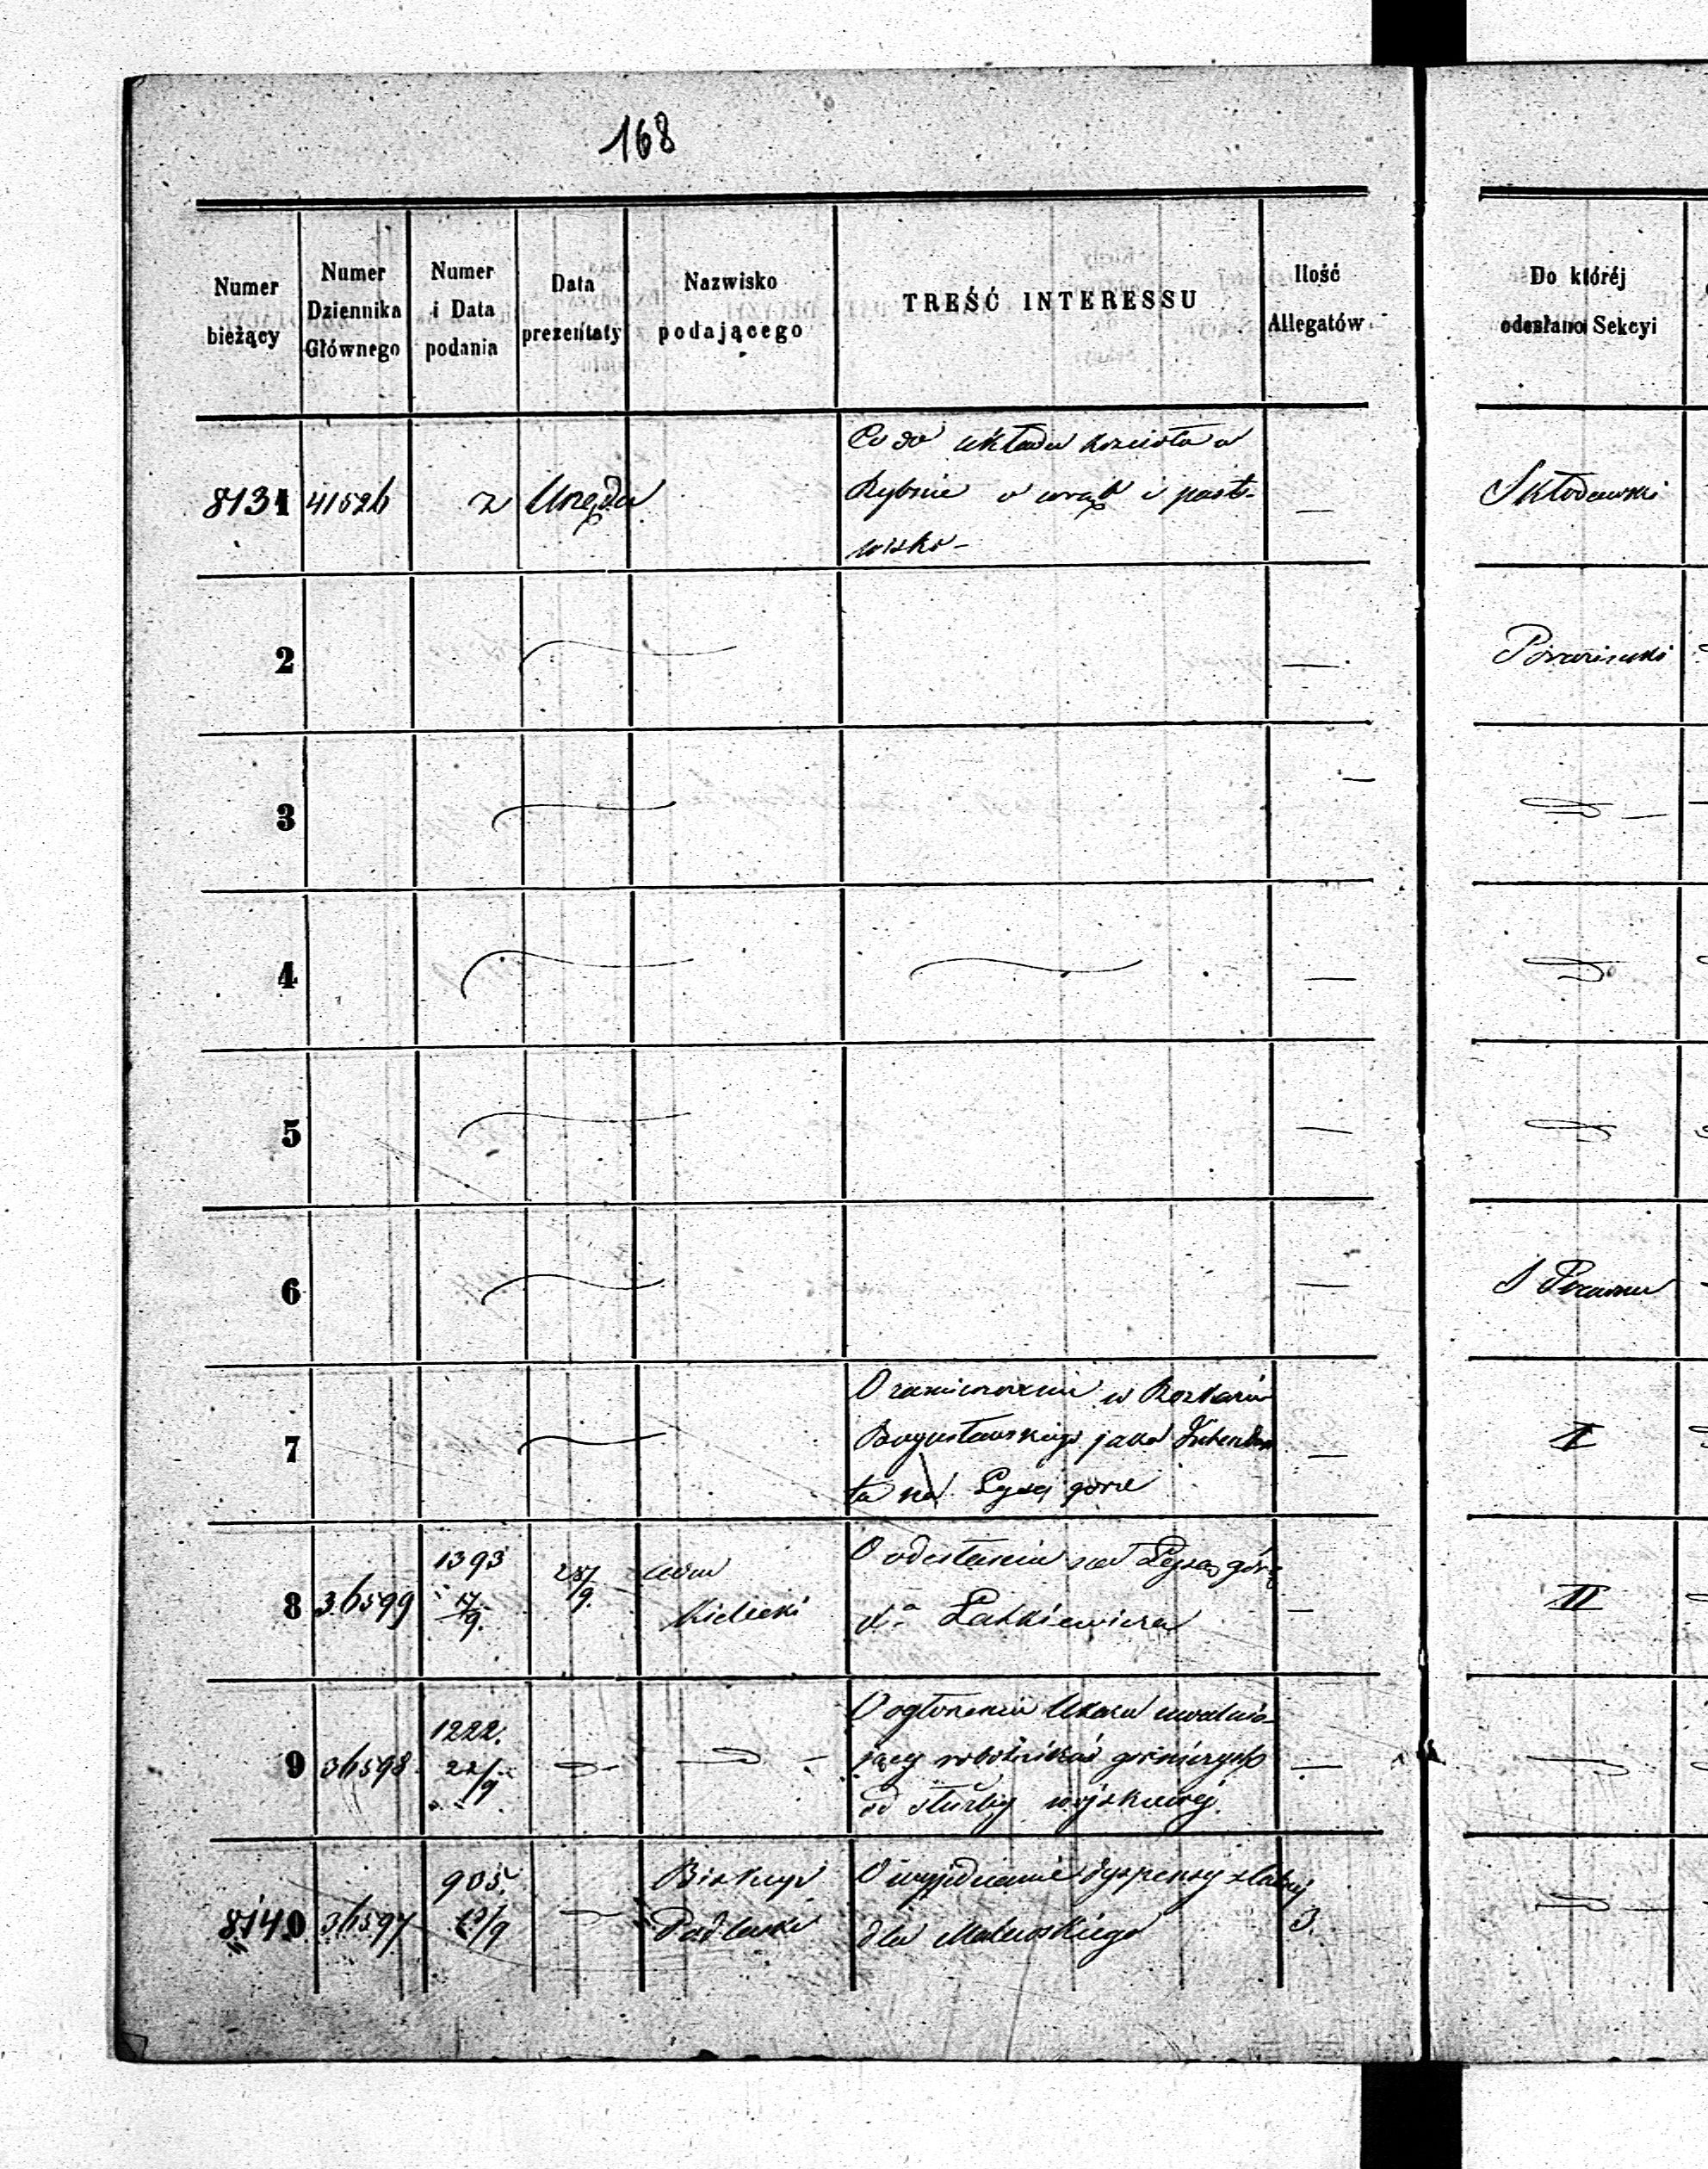 168
Numer bieżący
Numer Dziennika Głównego
Numer i Data podania
Data prezentaty
Nazwisko podającego
TREŚĆ INTERESSU
Ilość Allegatów
Do któréj odesłano Sekcyi
8131 41526 z Urzędu
Co do układu kościoła w
Rybnie o wrąb i past-
wisko -
Skłodowski
2
3
4
5
6
7
w
Bogusławskiego jako
ta na Łysej górze
I
8 36599 1393 17/9 28/9
Kielecki
O odesłaniu na Łysą górę
Xa Latkiewicza
II
9 36598 1222. 22/9
O ogłoszeniu Ukazu uwalnia-
jący robotników górniczych
od służby wojskowej
8140 36597 905. 19/9
Biskup
Podlaski
O wyjednanie dyspensy
dla Malewskiego
3.